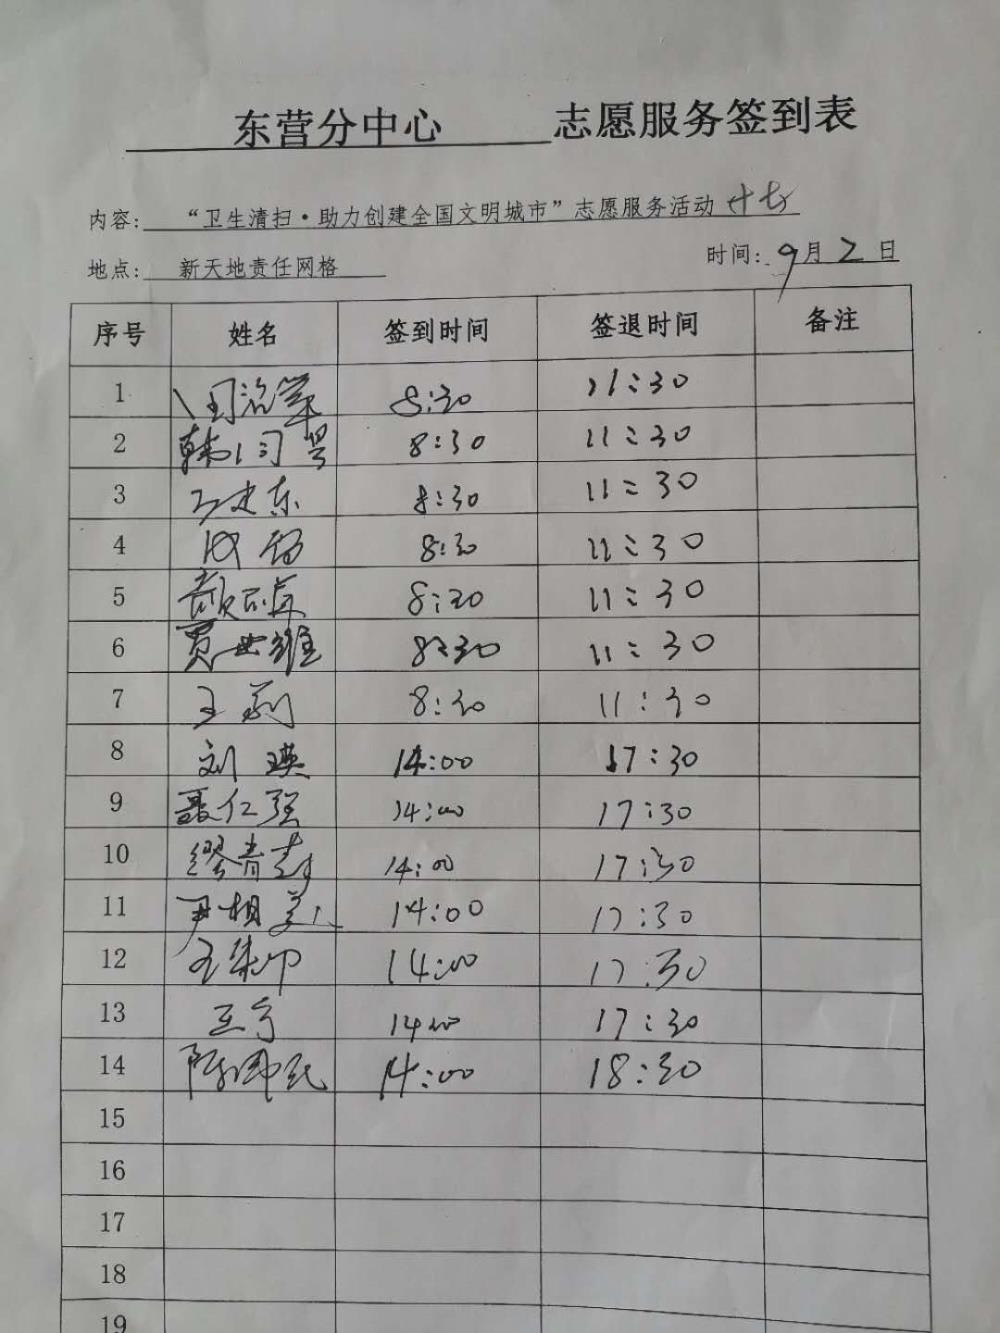 东营分中心 志愿服务签到表
内容: “卫生清扫·助力创建全国文明城市”志愿服务活动
地点: 新天地责任网格 时间: 9月2日
序号 姓名 签到时间 签退时间 备注
1 8:30 11:30
2 8:30 11:30
3 8:30 11:30
4 8:30 11:30
5 8:30 11:30
6 贾世维 8:30 11:30
7 王莉 8:30 11:30
8 刘瑛 14:00 17:30
9 聂仁强 14:00 17:30
10 14:00 17:30
11 尹相美 14:00 17:30
12 14:00 17:30
13 14:00 17:30
14 14:00 18:30
15
16
17
18
19